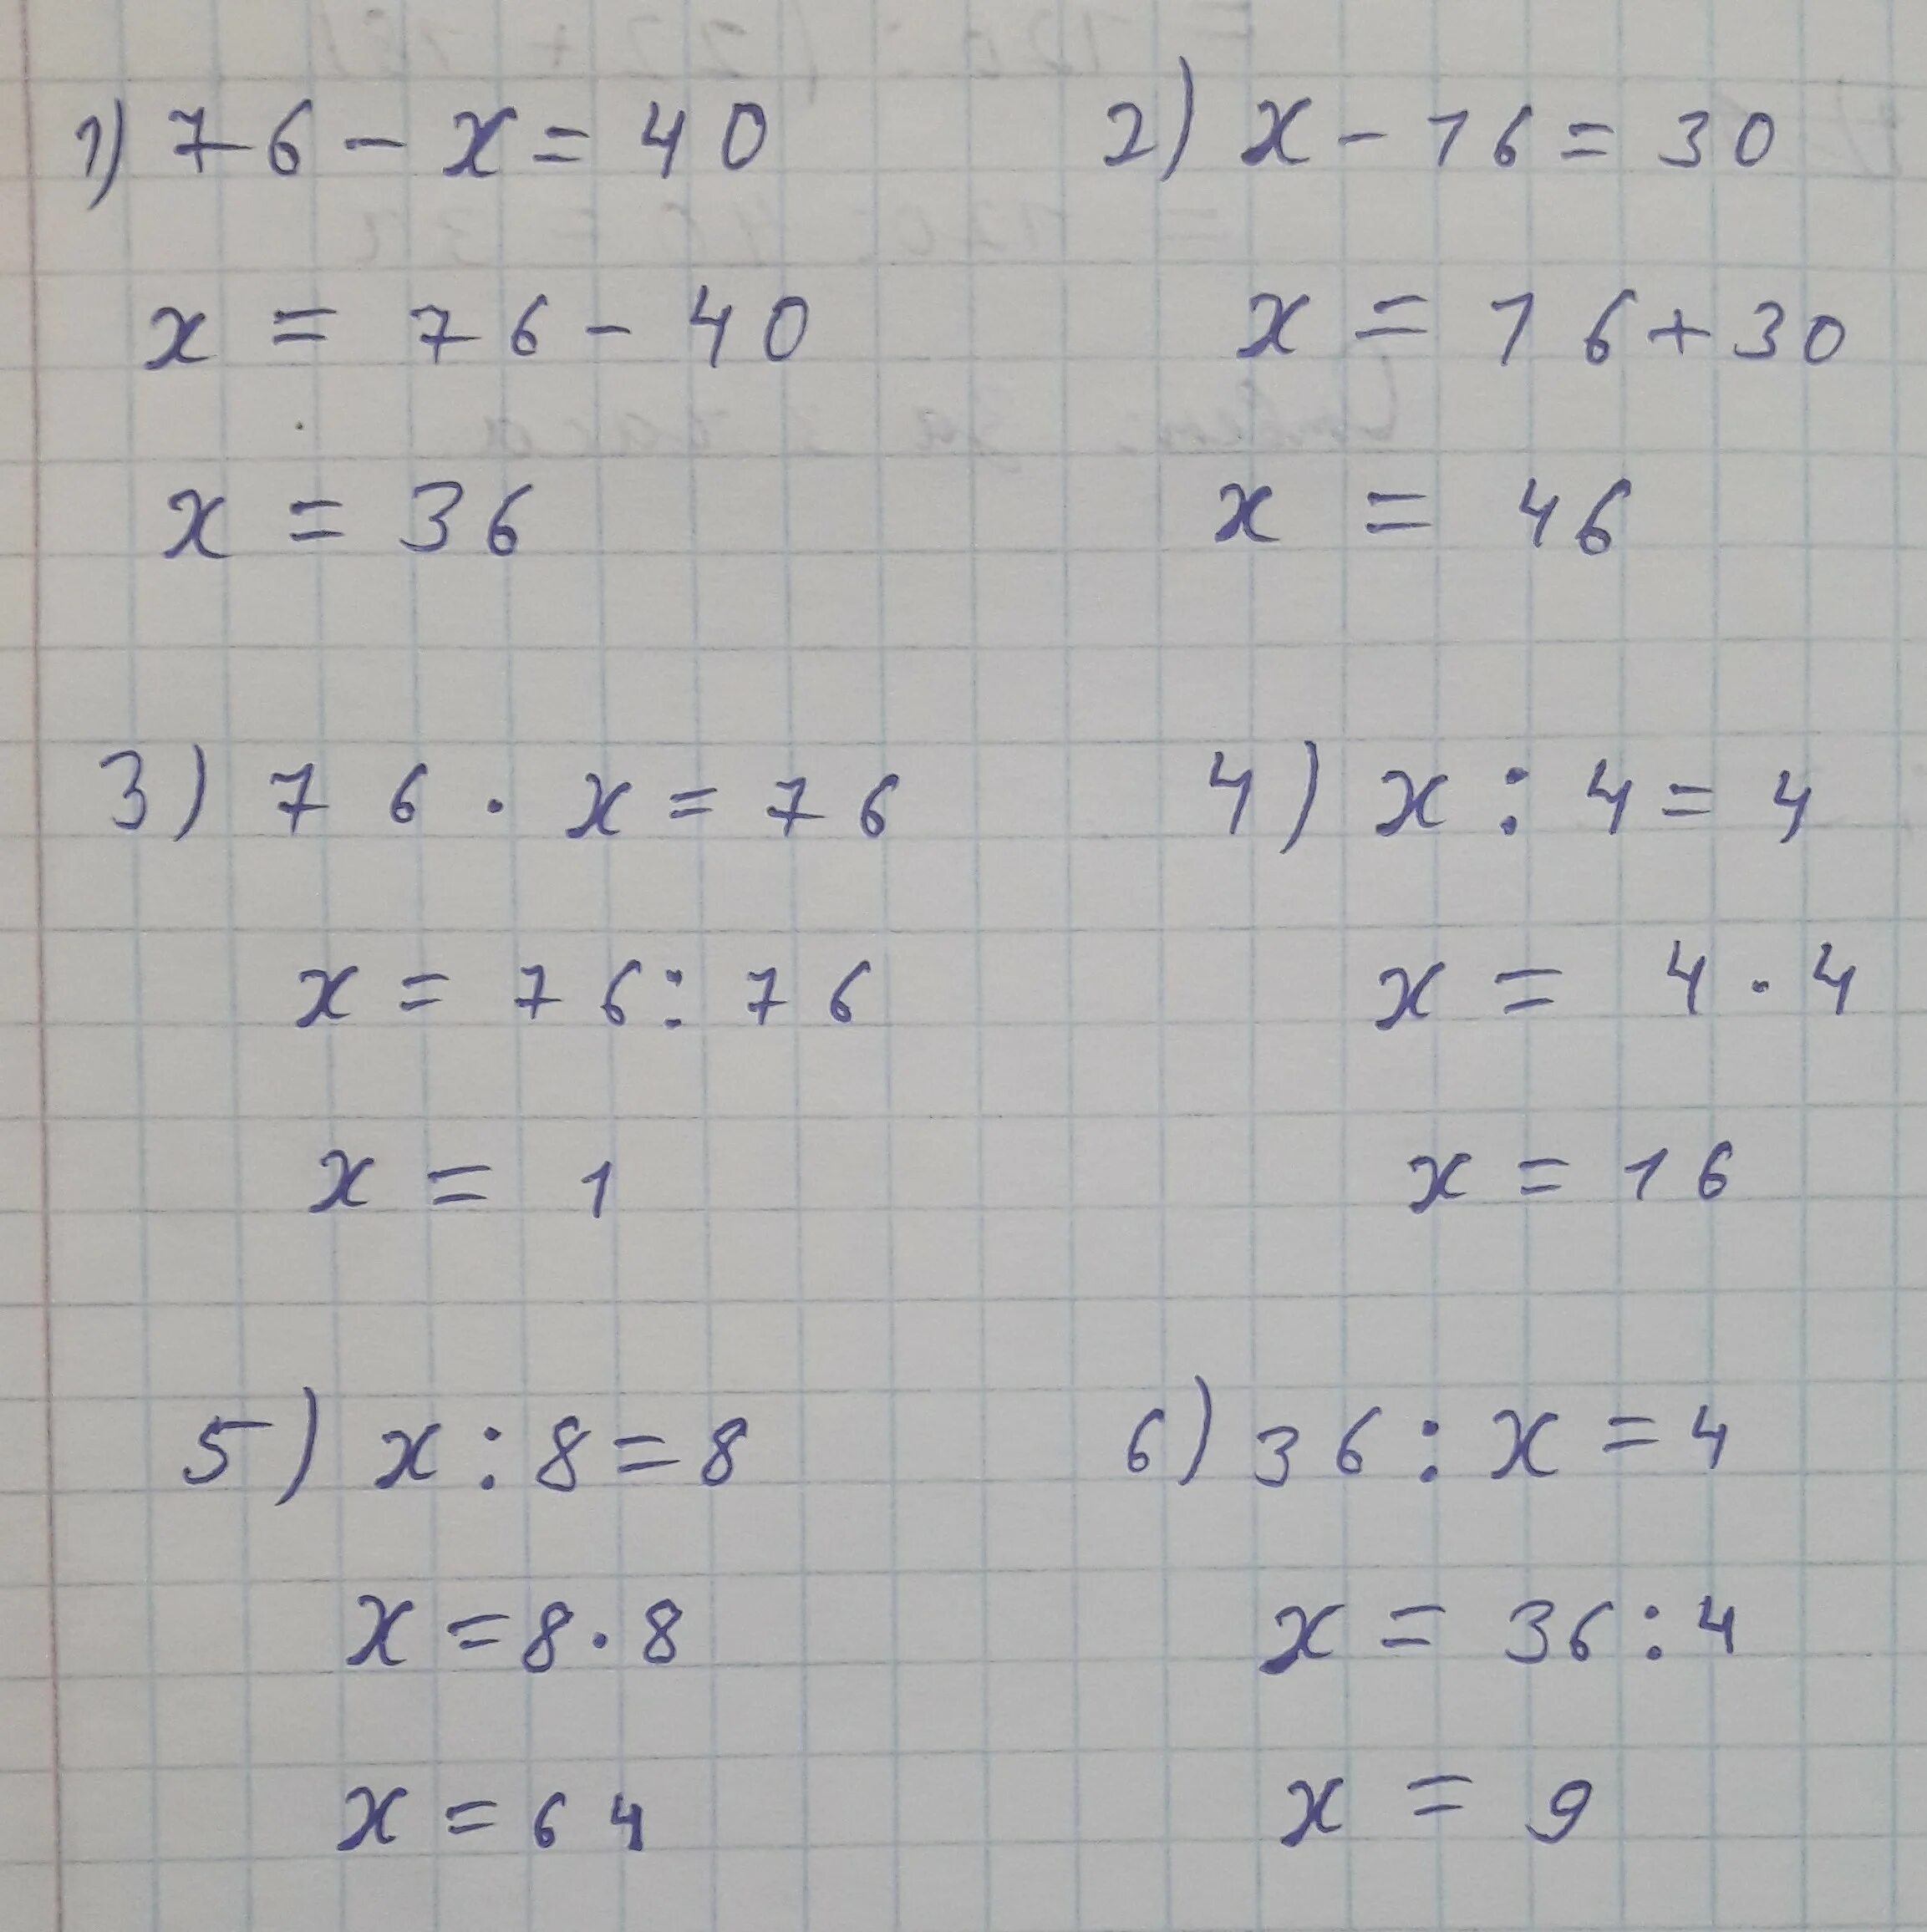 1) 76 - x = 40
x = 76 - 40
x = 36
2) x - 16 = 30
x = 16 + 30
x = 46
3) 76 · x = 76
x = 76 : 76
x = 1
4) x : 4 = 4
x = 4 · 4
x = 16
5) x : 8 = 8
x = 8 · 8
x = 64
6) 36 : x = 4
x = 36 : 4
x = 9